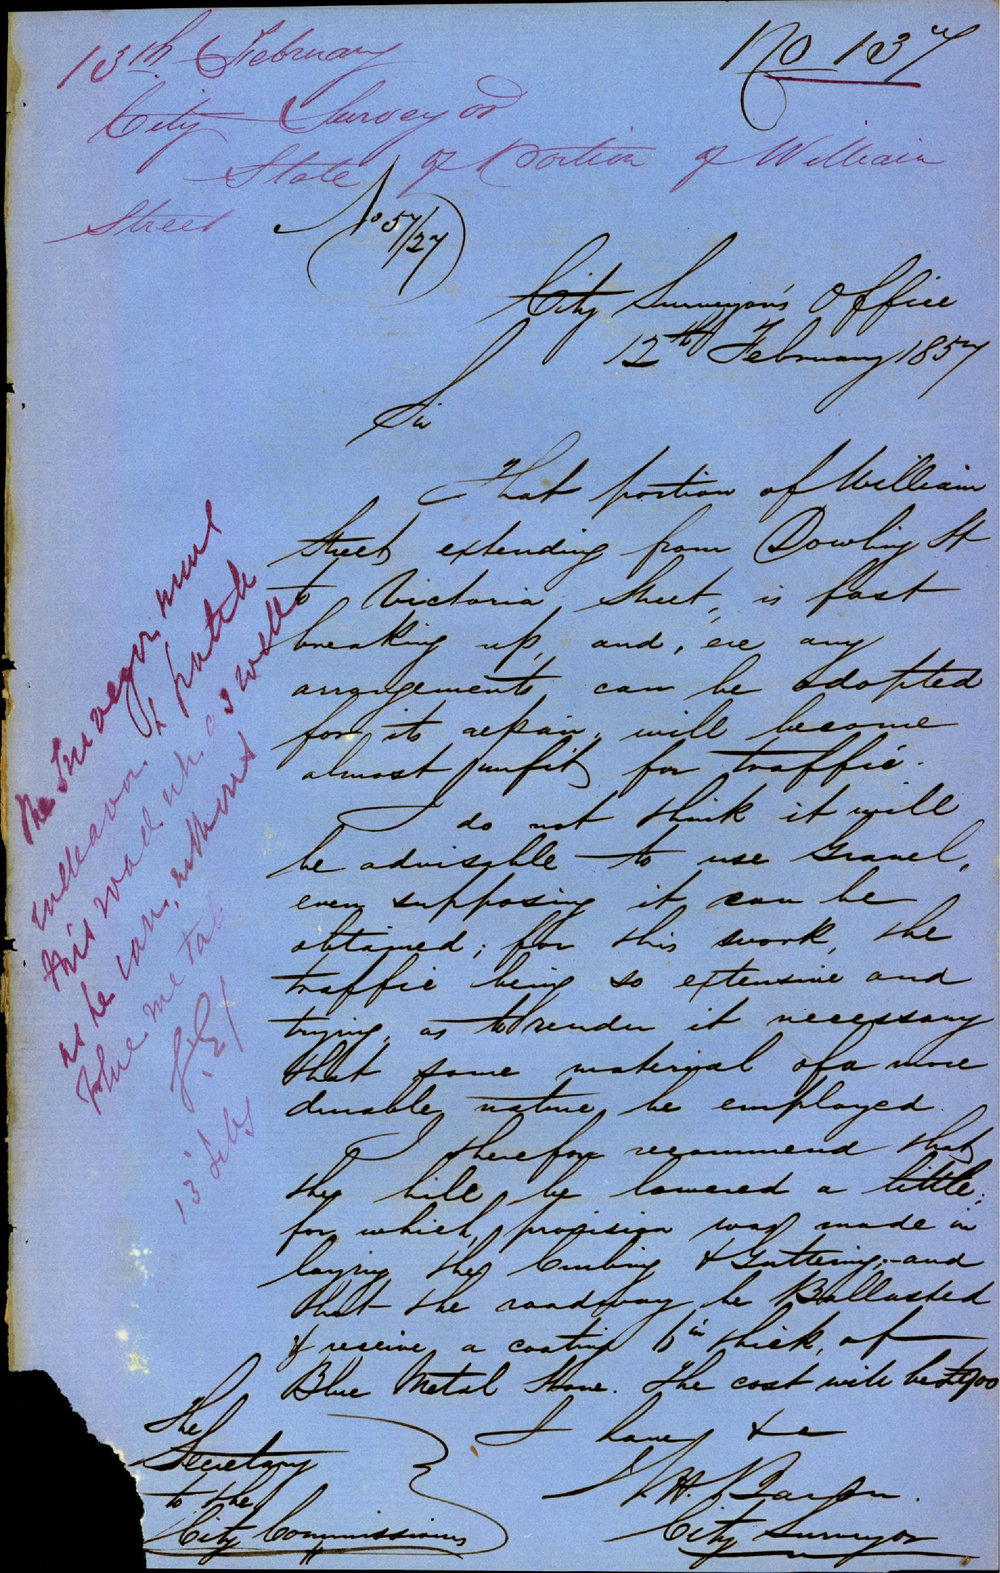 13th February
No 137
City Surveyor
State of Portion of William
Street
No 57/27
City Surveyor's Office
12th February 1857
Sir
That portion of William
Street extending from Dowling St
to Victoria Street, is fast
breaking up, and, 'ere any
arrangements can be adopted
for its repair, will become
almost unfit for traffic.
I do not think it will
be advisable to use Gravel,
even supposing it can be
obtained; for this work, the
traffic being so extensive and
trying, as to render it necessary
that some material of a more
durable nature be employed.
I therefore recommend that
the hill be lowered a little;
for which, provision was made in
laying the Curbing & Guttering;-and
that the roadway be Ballasted
& receive a coating 6in thick, of
Blue Metal Stone. The cost will be £900
I have &c
City Surveyor
The
Secretary
to the
City Commissioners
The Surveyor must
endeavor to patch
this road up as well
as he can, without
blue metal
13 Feby